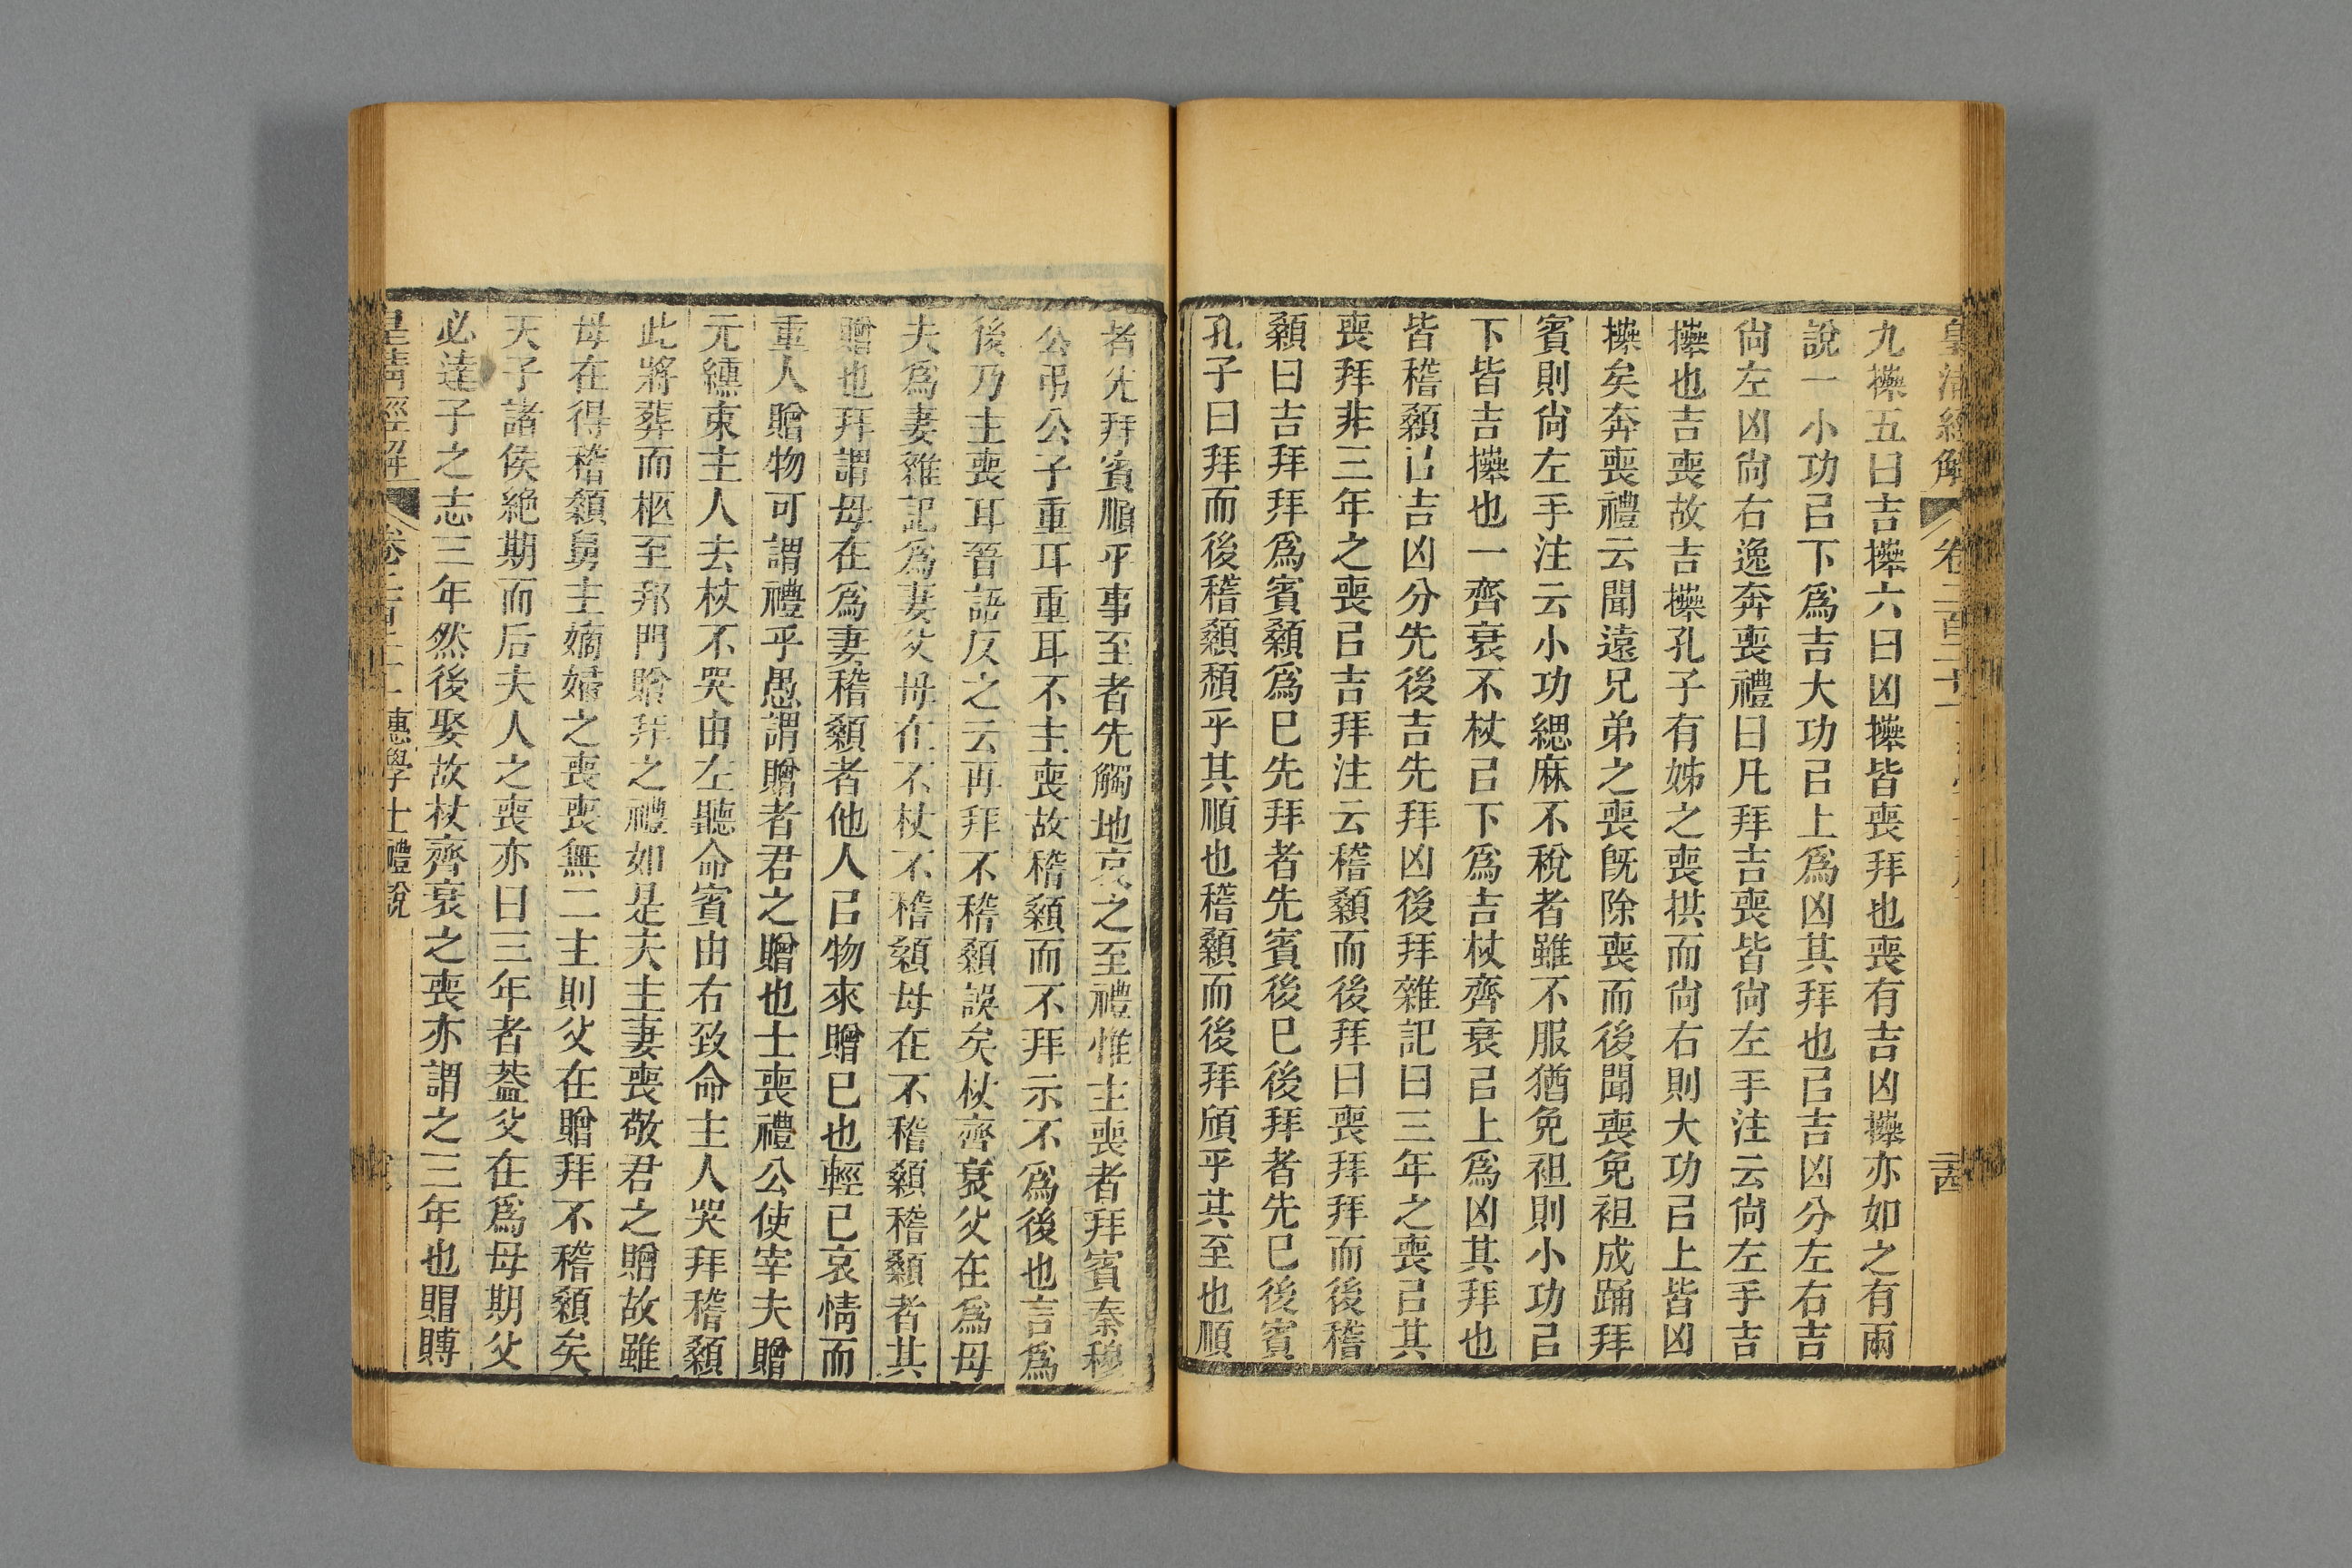 九㩓五曰吉㩓六曰凶㩓皆喪拜也喪有吉凶㩓亦如之有兩
說一小功㠯下爲吉大功㠯上爲凶其拜也㠯吉凶分左右吉
尙左凶尙右逸奔喪禮曰凡拜吉喪皆尙左手注云尙左手吉
㩓也吉喪故吉㩓孔子有姊之喪拱而尙右則大功㠯上皆凶
㩓矣奔喪禮云聞遠兄弟之喪旣除喪而後聞喪免袒成踊拜
賓則尙左手注云小功緦麻不稅者雖不服猶免袒則小功㠯
下皆吉㩓也一齊衰不杖㠯下爲吉杖齊衰㠯上爲凶其拜也
皆稽顙㠯吉凶分先後吉先拜凶後拜雜記曰三年之喪㠯其
喪拜非三年之喪㠯吉拜注云稽顙而後拜曰喪拜拜而後稽
顙曰吉拜拜爲賓顙爲巳先拜者先賓後巳後拜者先巳後賓
孔子曰拜而後稽顙頹乎其順也稽顙而後拜頎乎其至也順
者先拜賓順乎事至者先觸地哀之至禮惟主喪者拜賓秦穆
公弔公子重耳重耳不主喪故稽顙而不拜示不爲後也言爲
後乃主喪耳晉語反之云再拜不稽顙誤矣杖齊衰父在爲母
夫爲妻雜記爲妻父母在不杖不稽顙母在不稽顙稽顙者其
贈也拜謂母在爲妻稽顙者他人㠯物來贈巳也輕巳哀情而
重人贈物可謂禮乎愚謂贈者君之贈也士喪禮公使宰夫贈
元纁束主人去杖不哭由左聽命賓由右致命主人哭拜稽顙
此將葬而柩至邦門贈拜之禮如是夫主妻喪敬君之贈故雖
母在得稽顙舅主嫡婦之喪喪無二主則父在贈拜不稽顙矣
天子諸侯絶期而后夫人之喪亦曰三年者葢父在爲母期父
必達子之志三年然後娶故杖齊衰之喪亦謂之三年也賵賻
皇淸經解 惠學士禮說